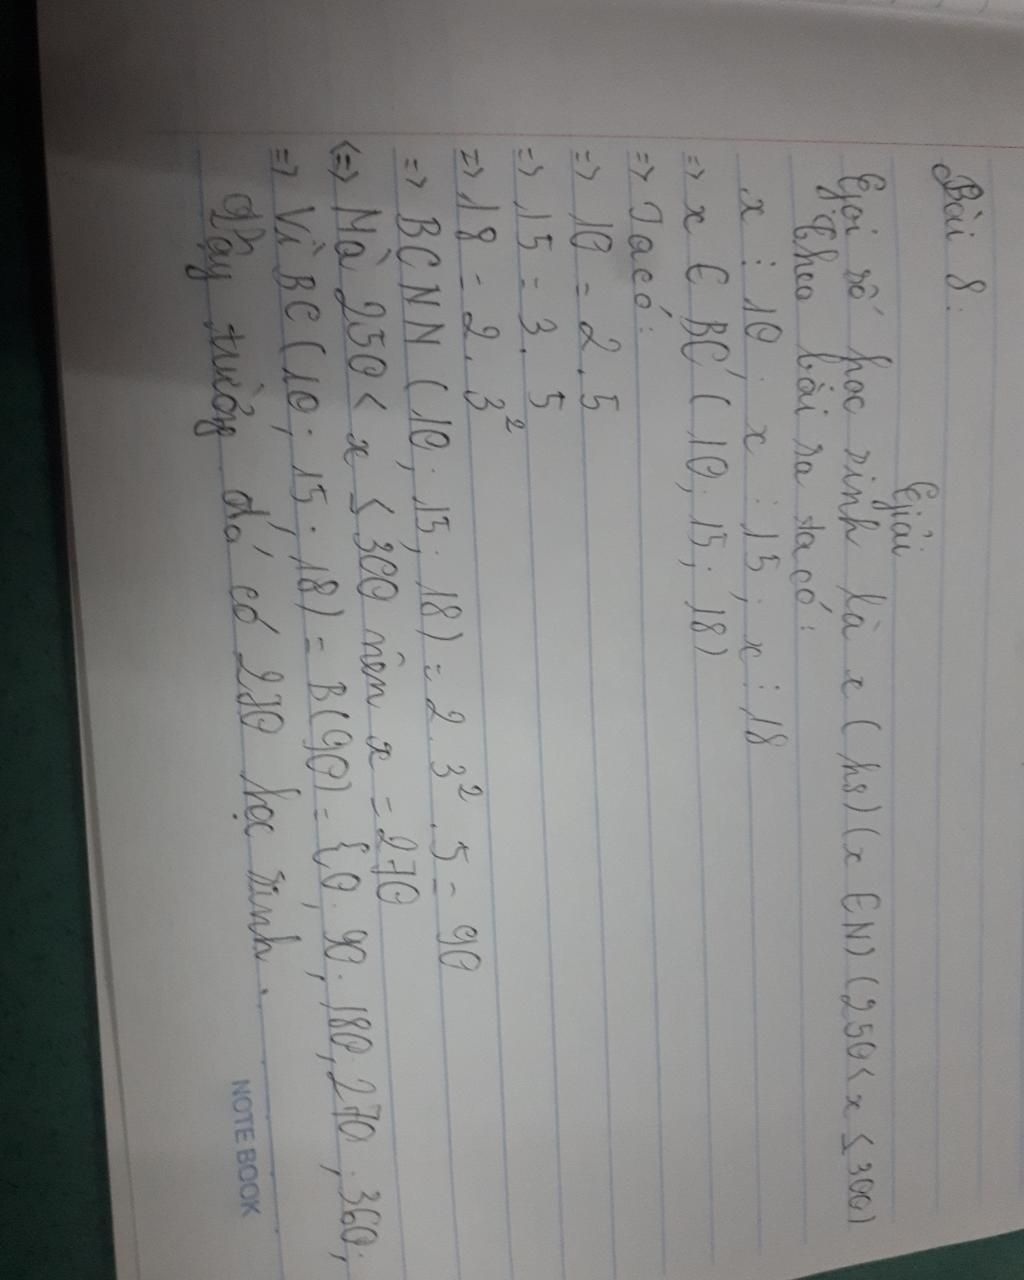 Bài 8:
Giải
Gọi số học sinh là x (hs) (x ∈ N) (250 < x ≤ 300)
Theo bài ra ta có:
x ⋮ 10; x ⋮ 15; x ⋮ 18
=> x ∈ BC (10; 15; 18)
=> Ta có:
=> 10 = 2.5
=> 15 = 3.5
=> 18 = 2.3²
=> BCNN (10; 15; 18) = 2.3².5 = 90
<=> Mà 250 < x ≤ 300 nên x = 270
=> Vì BC (10; 15; 18) = B(90) = {0; 90; 180; 270; 360;
Vậy trường đó có 270 học sinh.
NOTE BOOK